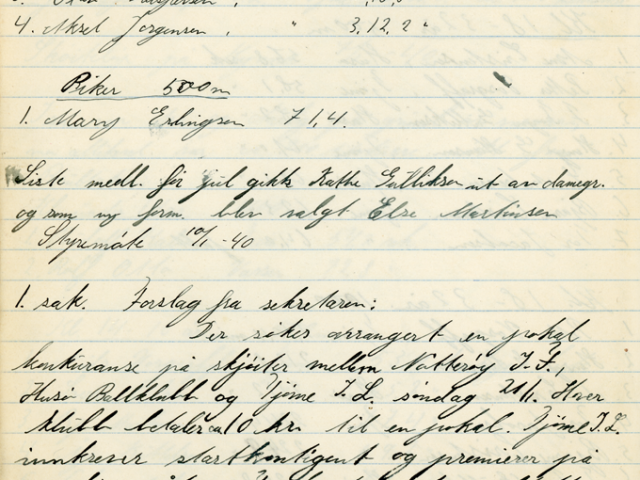 4. Aksel Jørgensen, " 3,12,2 "
Piker 500m
1. Mary Erlingsen 71,4.
Siste medl. før jul gikk Kathe Gulliksen ut av damegr.
og som ny form. blev valgt Else Martinsen
Styremøte 10/1 -40
1. sak. Forslag fra sekretæren:
Der søkes arrangert en pokal
konkuranse på skjøiter mellem Nøtterøy I.F.,
Husø Ballklubb og Tjøme I.L. søndag 21/1. Hver
klubb betaler ca 10 kr. til en pokal. Tjøme I.L.
innkrever startkontigent og premierer på